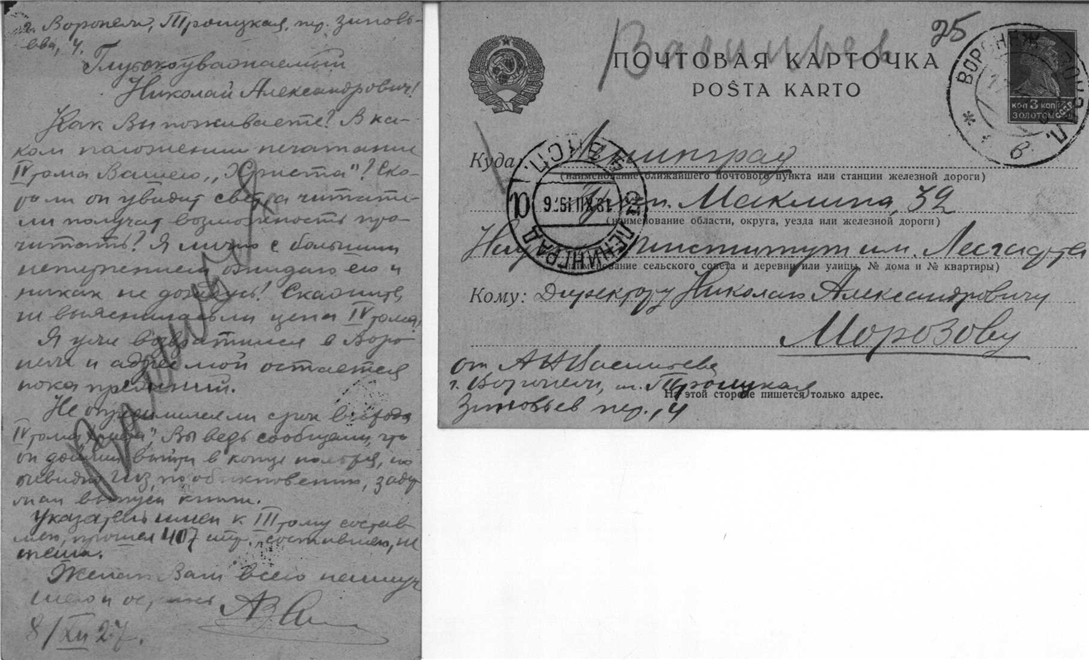 г. Воронеж, Троицкая, пер. Зиновь-
ева, 4.
Глубокоуважаемый
Николай Александрович!
Как Вы поживаете? В ка-
ком положении печатание
IV тома Вашего „Христа"? Ско-
ро ли он увидит свет и читате-
ли получат возможность про-
читать? Я лично с большим
нетерпением ожидаю его и
никак не дождусь! Скажите,
не выяснилась ли цена IV тома?
Я уже возвратился в Воро-
неж и адрес мой остается
пока прежний.
Не определился ли срок выхода
IV тома? Вы ведь сообщали, что
он должен выйти в конце ноября, но
очевидно Гиз, по обыкновению, задер-
жал выпуск книги.
Указатель имен к III тому состав-
лен, прошел 407 стр.
Желаю Вам всего наилуч-
шего и остаюсь
8/XII 27.
Васильев
Васильев
25
ПОЧТОВАЯ КАРТОЧКА
POŜTA KARTO
ВОРОНЕЖ
КОП 3 КОП
ЗОЛОТОМ
Куда: Ленинград
(наименование ближайшего почтового пункта или станции железной дороги)
Маклина, 32
(наименование области, округа, уезда или железной дороги)
институт им. Лесгафта
(наименование сельского совета и деревни или улицы, № дома и № квартиры)
ЛЕНИНГРАД
10
Кому: Директору Николаю Александровичу
Морозову
от А Васильева
г. Воронеж, Троицкая
Зиновьев пер., 4
На этой стороне пишется только адрес.